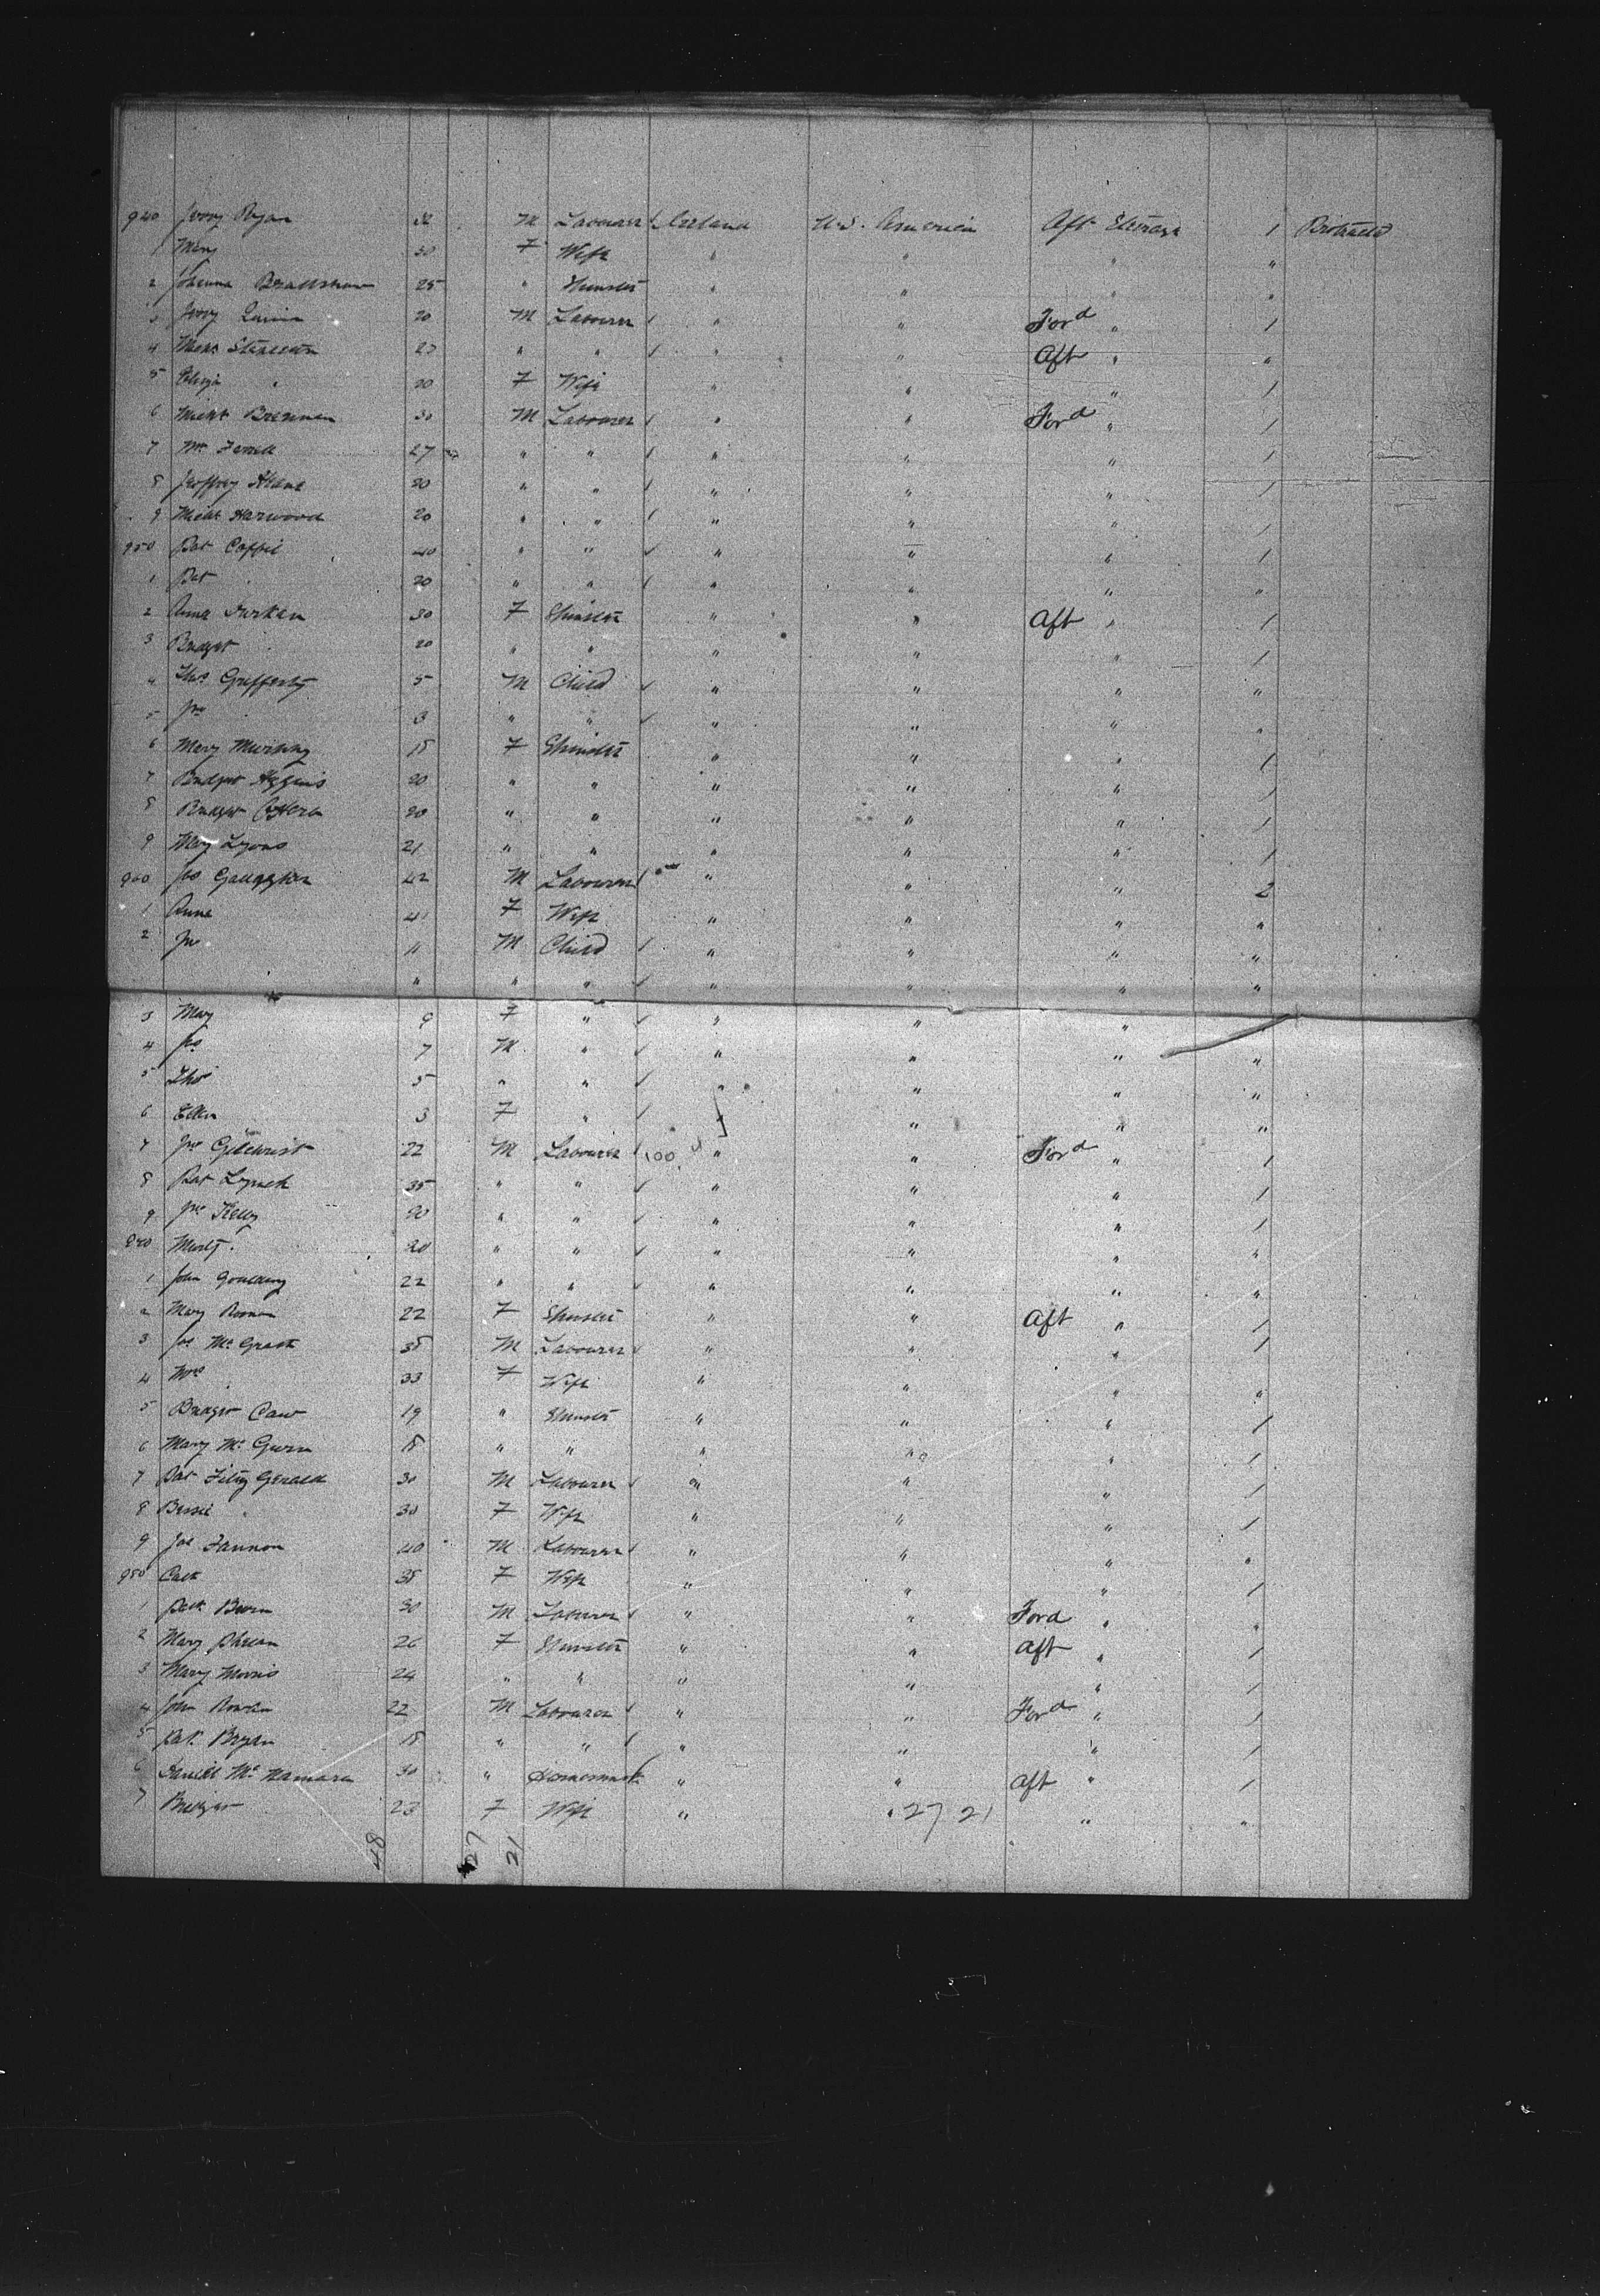 940 Jerry Ryan 32 M Labourer Ireland U.S. America Aft Steerage 1 Protracted
1 Mary 30 F Wife " " " "
2 Johanna Bradshaw 25 " Spinster " " " "
3 Jerry Quinn 20 M Labourer " " Ford " 1
4 Michl Stapleton 23 " " " " Aft " "
5 " 20 F Wife " " " 1
6 Michl Brennan 30 M Labourer " " Ford " 1
7 Wm Farrell 27 " " " " " 1
8 Jeoffrey Keane 20 " " " " " 1
9 Michl Harwood 20 " " " " " 1
950 Pat Coffee 40 " " " " " 1
1 Pat " 20 " " " " " "
2 Anne Durkan 30 F Spinster " " Aft " 1
3 Bridget " 20 " " " " " 1
4 Thos Grafferty 5 M Child " " " "
5 Jno " 3 " " " " " "
6 Mary Murphy 18 F Spinster " " " 1
7 Bridget Higgins 20 " " " " " 1
8 Bridget O'Hara 20 " " " " " 1
9 Mary Lyons 21 " " " " " 1
960 Jas Gallagher 42 M Labourer " " " 2
1 Anne 41 F Wife " " " "
2 Jno 11 M Child " " " "
" " " " " " "
3 Mary 9 F " " " " "
4 Jas 7 M " " " " "
5 Thos 5 " " " " " "
6 Ellen 3 F " " " " "
7 Jno Gilchrist 22 M Labourer 100 " " Ford " 1
8 Pat Lynch 35 " " " " " 1
9 Jno Kelly 20 " " " " " 1
970 Marty " 20 " " " " " "
1 John Goulding 22 " " " " " "
2 Mary Ronan 22 F Spinster " " Aft " 1
3 Jas McGrath 35 M Labourer " " " 1
4 Mrs " 33 F Wife " " " "
5 Bridget Caw 19 " Spinster " " " 1
6 Mary McGurn 18 " " " " " 1
7 Pat Fitzgerald 30 M Labourer " " " 1
8 Bessie " 30 F Wife " " " 1
9 Jas Fannon 40 M Labourer " " " "
980 Cath 35 F Wife " " " 1
1 Patk Beirn 30 M Labourer " " Ford " "
2 Mary Phelan 26 F Spinster " " Aft " 1
3 Mary Morris 24 " " " " " 1
4 John Rowan 22 M Labourer " " Ford " 1
5 Pat Bryan 18 " " " " " 1
6 Daniel McNamara 30 " " " Aft " 1
7 Bridget 23 F Wife " " 27 21 " "
48 27 21